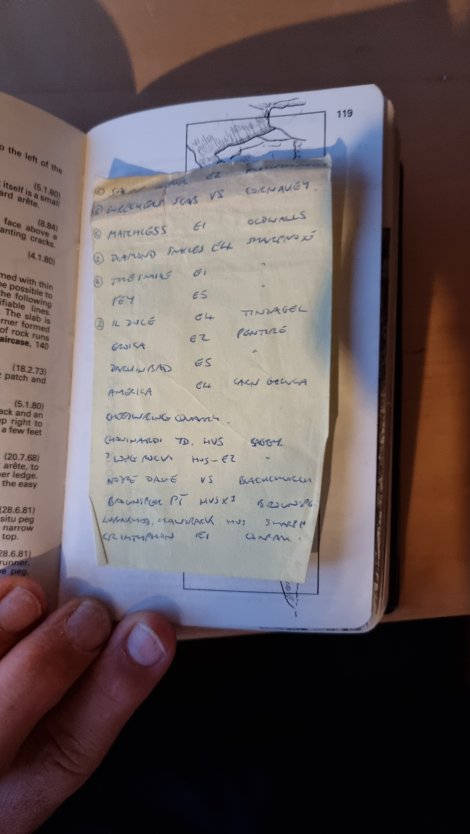 to the left of the
(5.1.80)
itself is a small
ard arête.
(8.84)
face above a
anting cracks.
(4.1.80)
med with thin
be possible to
the following
ifiable lines.
The slab is
orner formed
of rock runs
aircase, 140
(18.2.73)
patch and
(5.1.80)
ack and an
up right to
a few feet
(20.7.68)
arête, to
er ledge.
the easy
(28.6.81)
situ peg
narrow
top.
28.6.81)
runner.
e peg.
119
E2
SLAB VS CORNAKEY.
MATCHLESS E1 OLDWALLS
DIAMOND SMILES E4 SHARPNOSE
THE SMILE E1 "
FEY E5
IL DUCE E4 TINTAGEL
EROICA E2 PENTIRE
DARKINBAD E5 "
AMERICA E4 CARN GOWLA
CHEESEWRING QUARRY.
HVS
HVS-E2 "
VS BLACKCHURCH
BROWNSPEAR PT HVS X3
HVS SHARP
E1